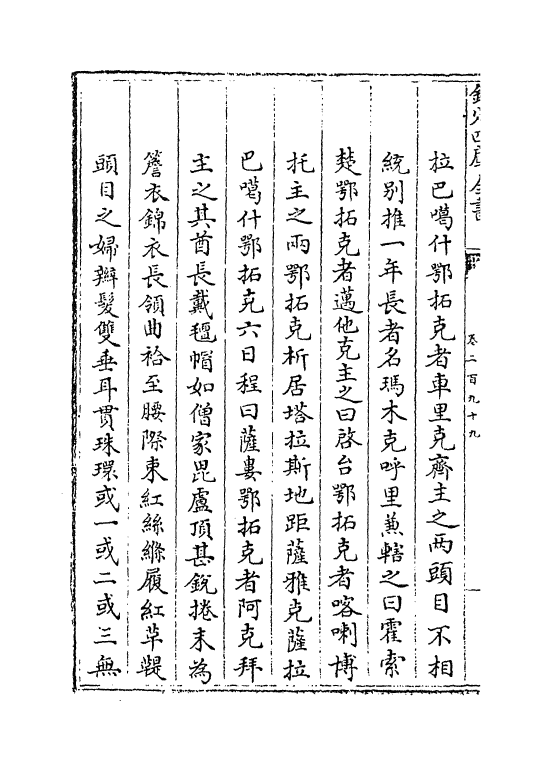 欽定四庫全書
卷二百九十九
拉巴噶什鄂拓克者車里克齊主之兩頭目不相
統别推一年長者名瑪木克呼里兼轄之曰霍索
楚鄂拓克者邁他克主之曰啓台鄂拓克者喀喇博
托主之兩鄂拓克析居塔拉斯地距薩雅克薩拉
巴噶什鄂拓克六日程曰薩婁鄂拓克者阿克拜
主之其酋長戴氊帽如僧家毘盧頂甚銳捲末為
簷衣錦衣長領曲袷至腰際束紅絲縧履紅革鞮
頭目之婦辮髮雙垂耳貫珠環或一或二或三無